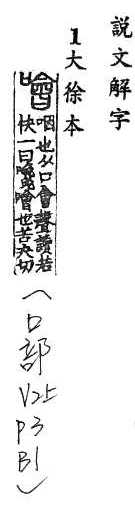 說文解字
1大徐本
噲
咽也从口會聲讀若
快一曰嚵噲也苦夬切
(口部 V2上 P3 B1)